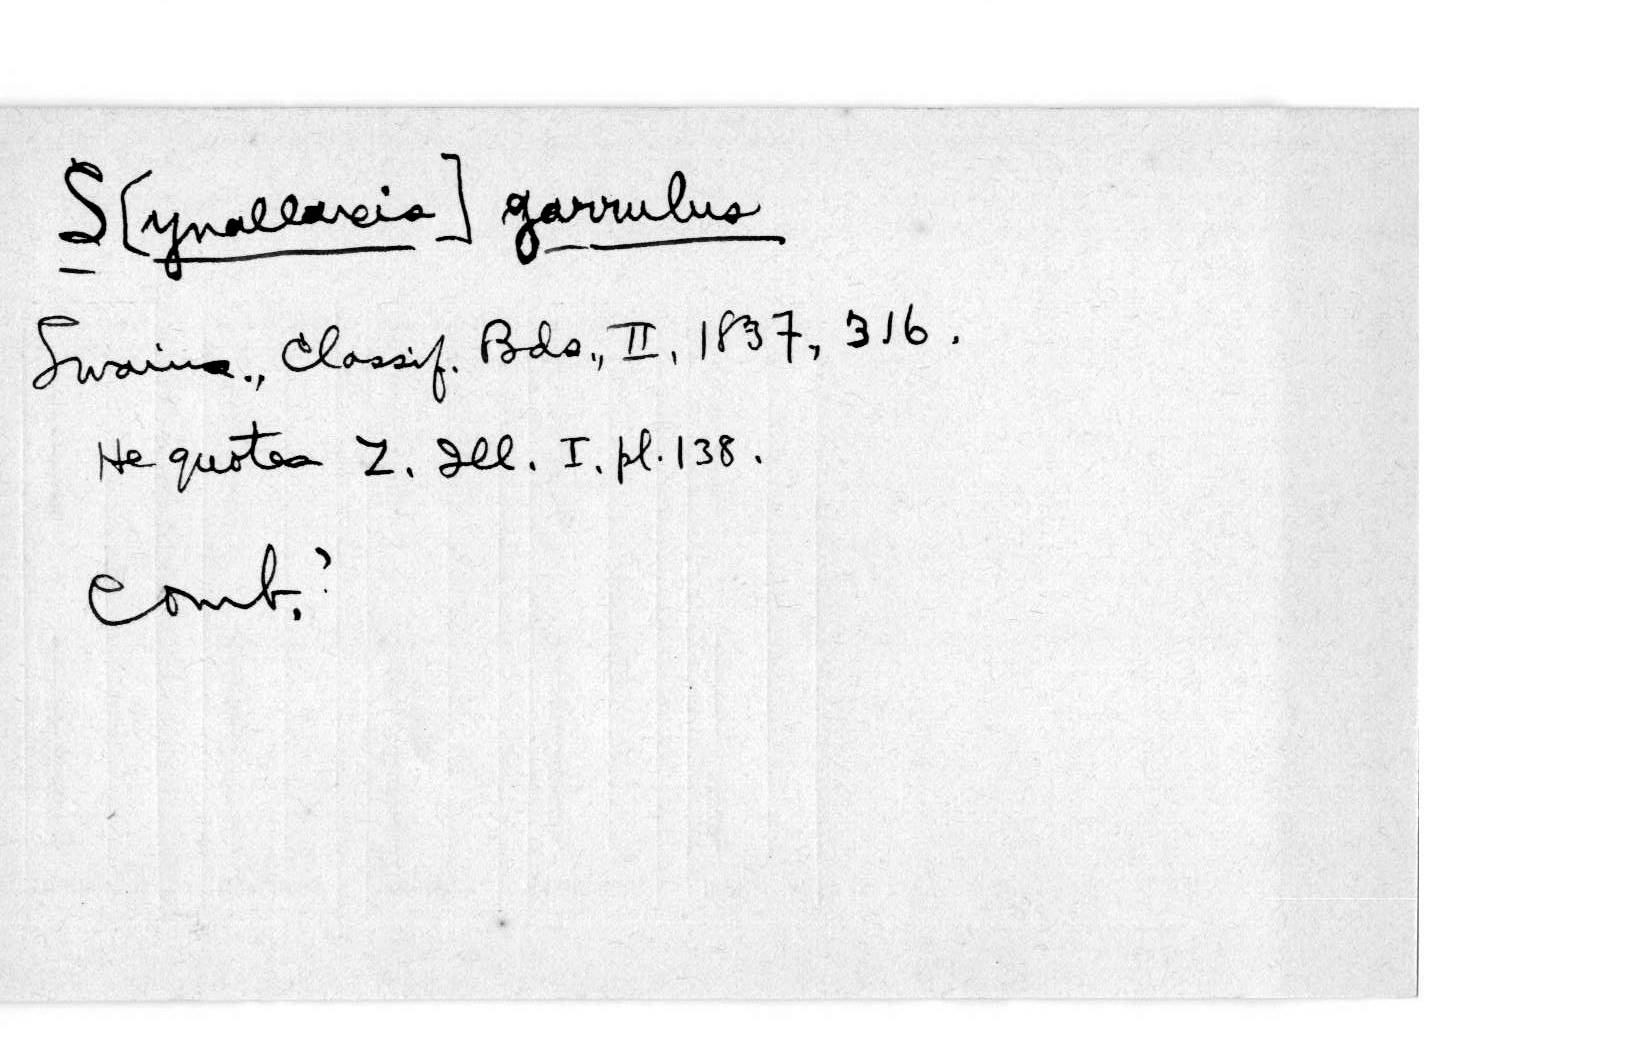 S[ynallaxis] garrulus
Swains., Classif. Bds., II, 1837, 316.
He quotes Z. Ill. I. pl. 138.
Comb.?